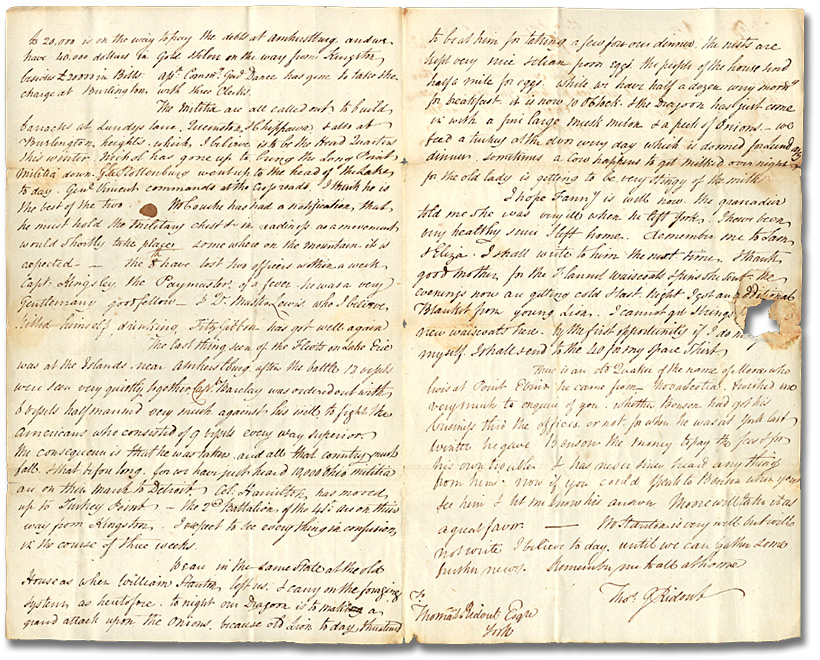 £ 20,000 is on the way to pay the debts at Amherstburg, and we
have 40,000 dollars in Gold & Silver on the way from Kingston
besides £20000 in Bills. Asst. Commy. Genl. Dance has gone to take the
charge at Burlington with three Clerks.
The Militia are all called out to build
barracks at Lundys lane, Queenston, & Chippawa, & also at
Burlington heights which, I believe is to be the Head Quarters
this winter. Nichol has gone up to bring the Long Point
militia down. Glas. Lt Infy went up to the head of the Lake
to day. Genl. Vincent commands at the Cross roads. I think he is
the best of the two. Mr Couche has had a notification, that
he must hold the military chest in readiness as a movement
would shortly take place, some where on the mountain it is
expected — The 8th have lost two officers within a week
Capt. Kingsley the Paymaster of a fever. he was a very
Gentlemany good fellow — & Lt. Lewis who I believe
killed himself drinking. FitzGibbon has got well again
The last thing seen of the Fleets on Lake Erie
was at the Islands near Amherstburg, after the battle 12 vessels
were seen very quietly together. Capt. Barclay was ordered out with
6 vessels half manned very much against his will to fight the
Americans who consisted of 9 vessels every way superior.
The consequence is that he was taken, and all that country must
fall, & that before long. for we have just heard 10,000 Ohio militia
are on their march to Detroit. Col. Hamilton has moved
up to Turkey Point — the 2nd Battalion of the 41st are on their
way from Kingston. I expect to see everything in confusion
in the course of three weeks.
We are in the same State at the old
House as when William Stanton left us. & carry on the foraging
system as heretofore. to night our Dragoon is to make a
grand attack upon the Onions, because old Lion to day threatened
to beat him for taking a few for our dinner. the nests are
kept very nice & clean from eggs. the people of the house send
half a mile for eggs while we have half a dozen every morng
for breakfast. it is now 10 oClock. & the Dragoon has just come
in with a fine large musk melon & a peck of Onions — we
feed a turkey at the door every day which is doomed for a Sunday
dinner. sometimes a Cow happens to get milked over night
for the old lady is getting to be very stingy of the milk
I hope Fanny is well now. the grenadier
told me she was very ill when he left York. I have been
very healthy since I left home. Remember me to Sam
& Eliza. I shall write to him the next time. I thank
good mother for the flannel waistcoats & pens she sent. the
evenings now are getting cold & last night I got an additional
Blanket from young Lion. I cannot get strings
new waistcoats here. by the first opportunity if I do
myself I shall send to the 40 for my spare Shirt
There is an old Quaker of the name of Moore who
lives at Point Ebino he came from Nova Scotia. & wished me
very much to enquire of you whether Benson had got his
business thro the offices or not, for when he was at York last
winter he gave Benson the money to pay the fees & for
his own trouble & has never since heard any thing
from him. now if you could speak to Benson when you
see him & let me know his answer. Moore will take it as
a great favor. — Mr Stanton is very well but will
not write I believe to day. until we can gather some
further news. Remember me to all at home
Thos. G Ridout
To
Thomas Ridout Esqre
York